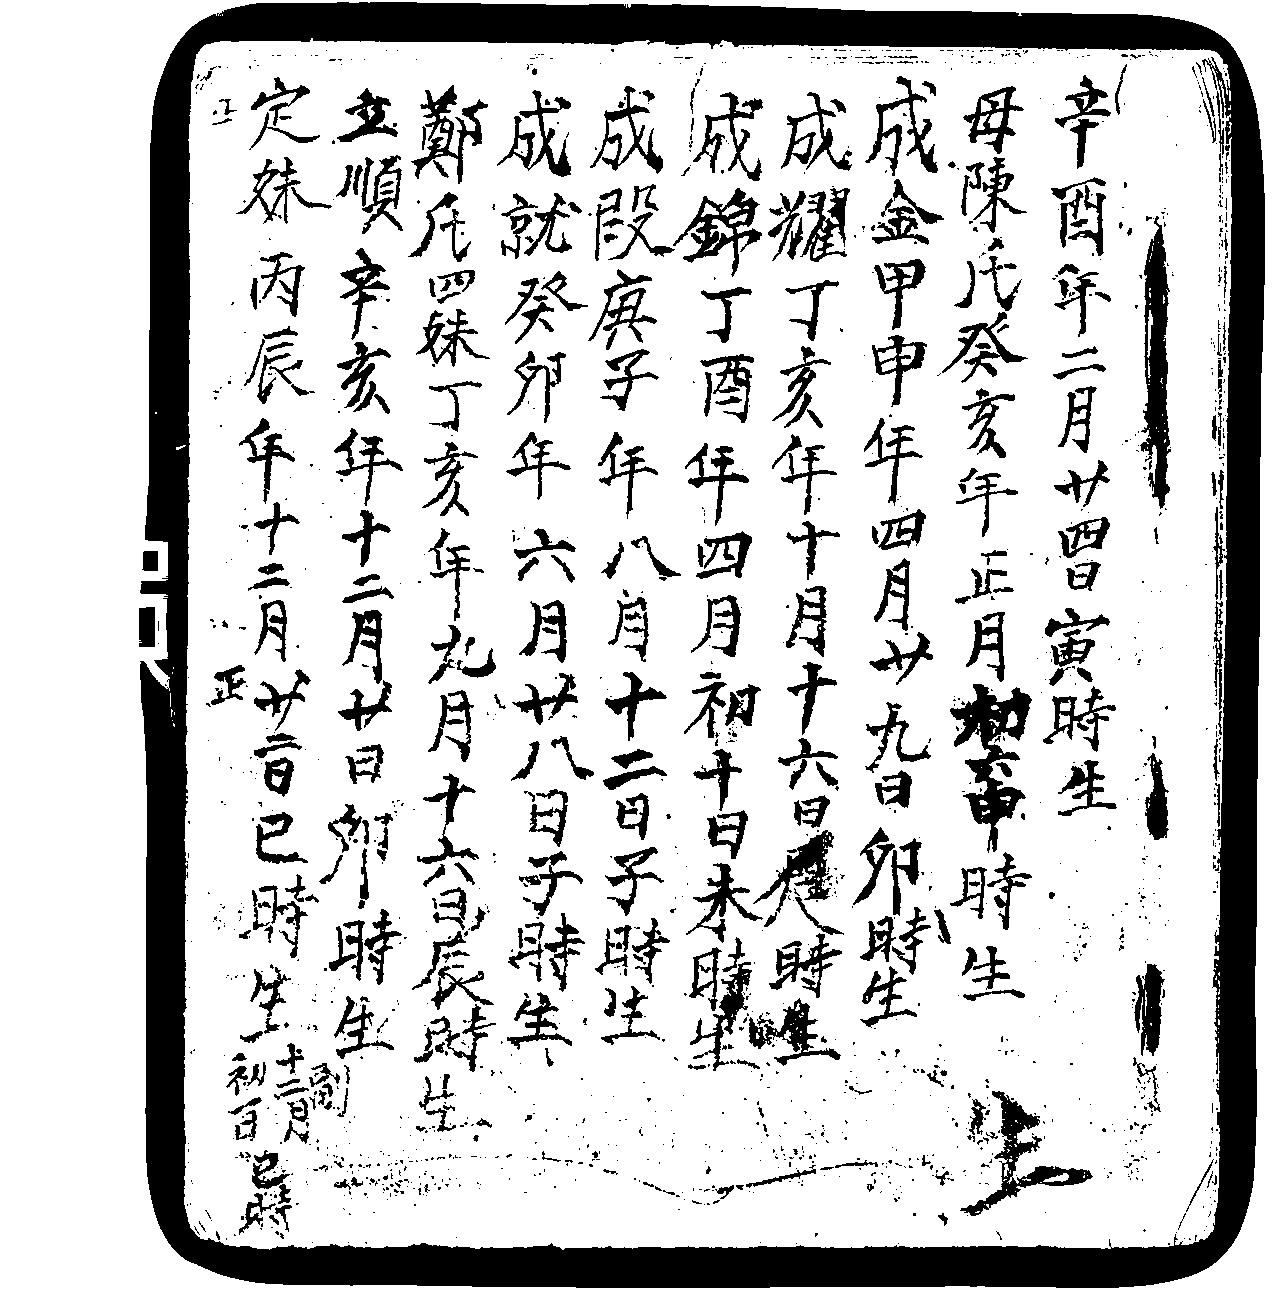 辛酉年二月廿四日寅時生
母陳氏癸亥年正月初六申時生
成金甲申年四月廿九日卯時生
成耀丁亥年十月十六日時生
成錦丁酉年四月初十日未時生
成段庚子年八月十二日子時生
成就癸卯年六月廿八日子時生
鄭氏四妹丁亥年九月十六日辰時生
並順辛亥年十二月廿日卯時生
定妹丙辰年十二月廿二日巳時生
副十二月
初一日巳時
正
正
生